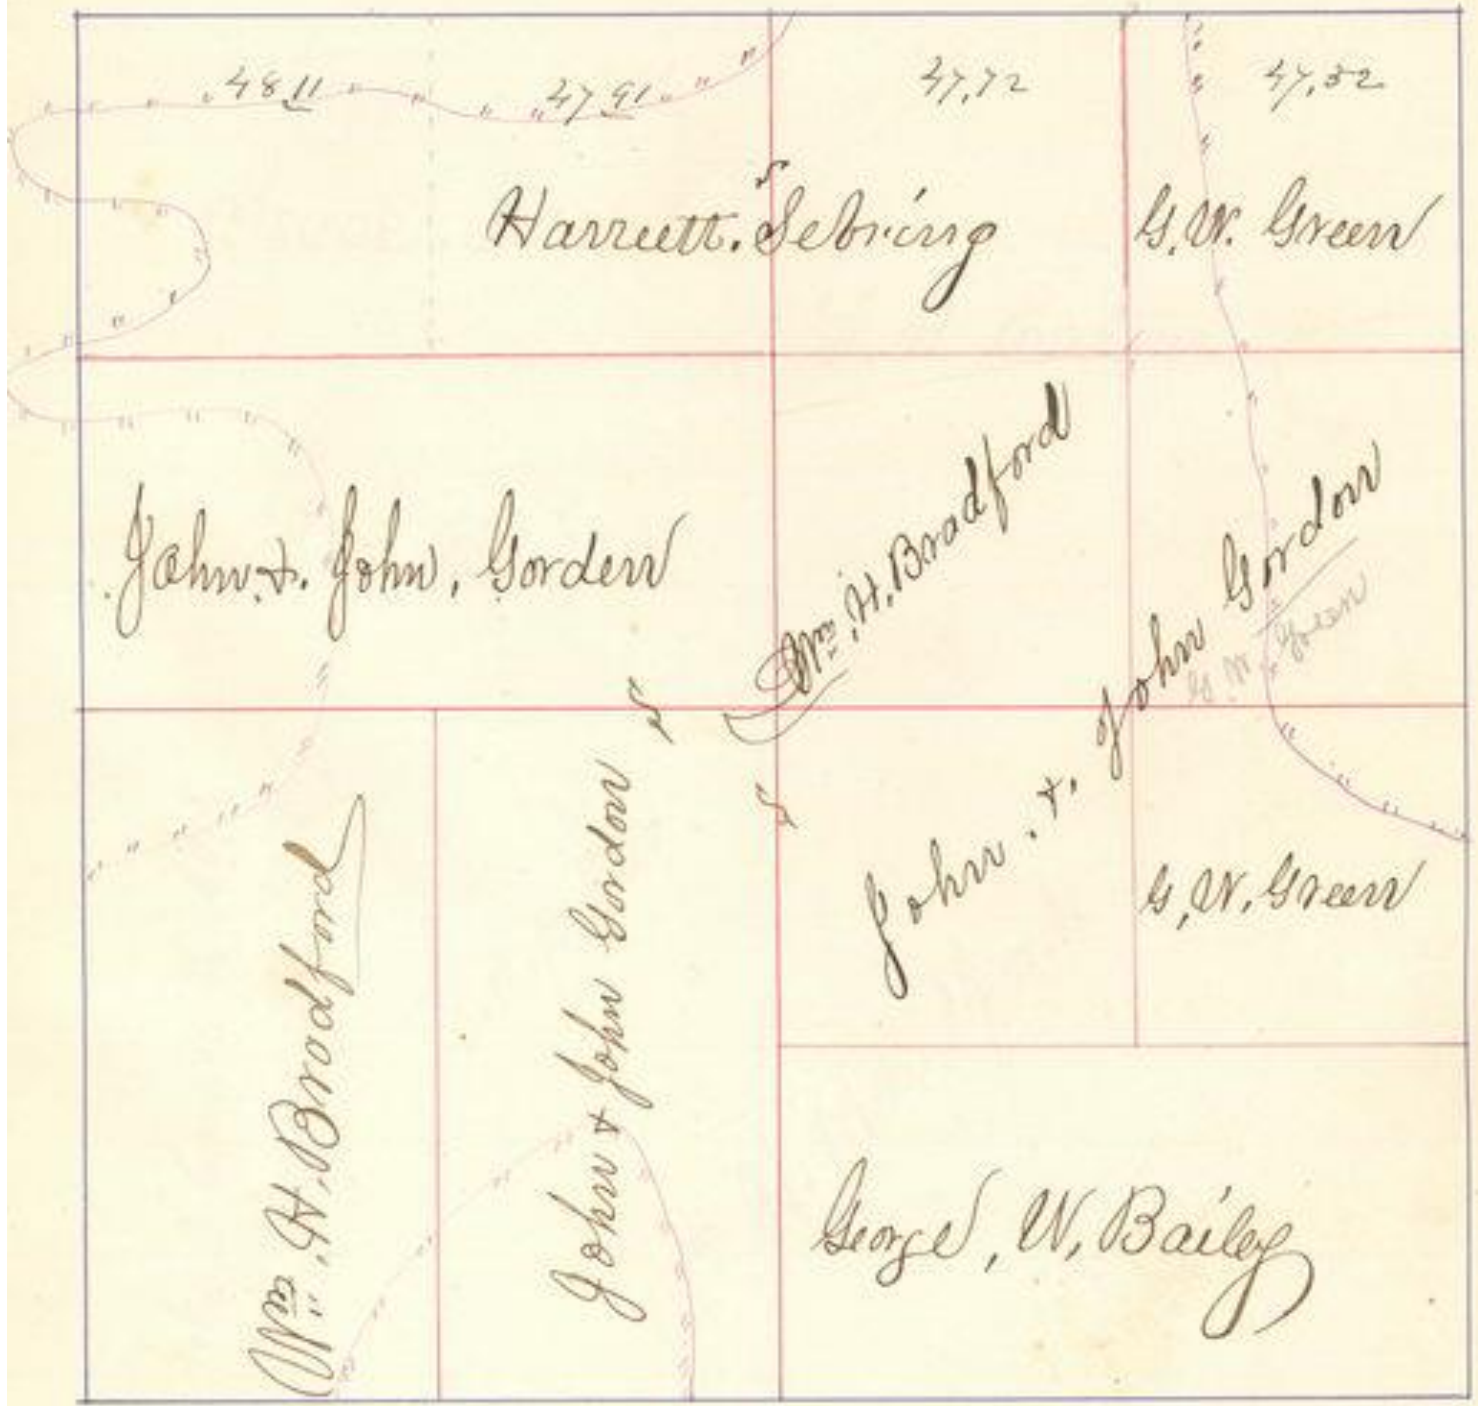 48 11
47 91
47,72
47,52
Harriett. Sebring
G. W. Green
John. &. John, Gorden
Wm. H. Bradford
John. &. John Gordon
G. W. Green
G. W. Green
Wm. H. Bradford
John & John Gordon
George, W, Bailey